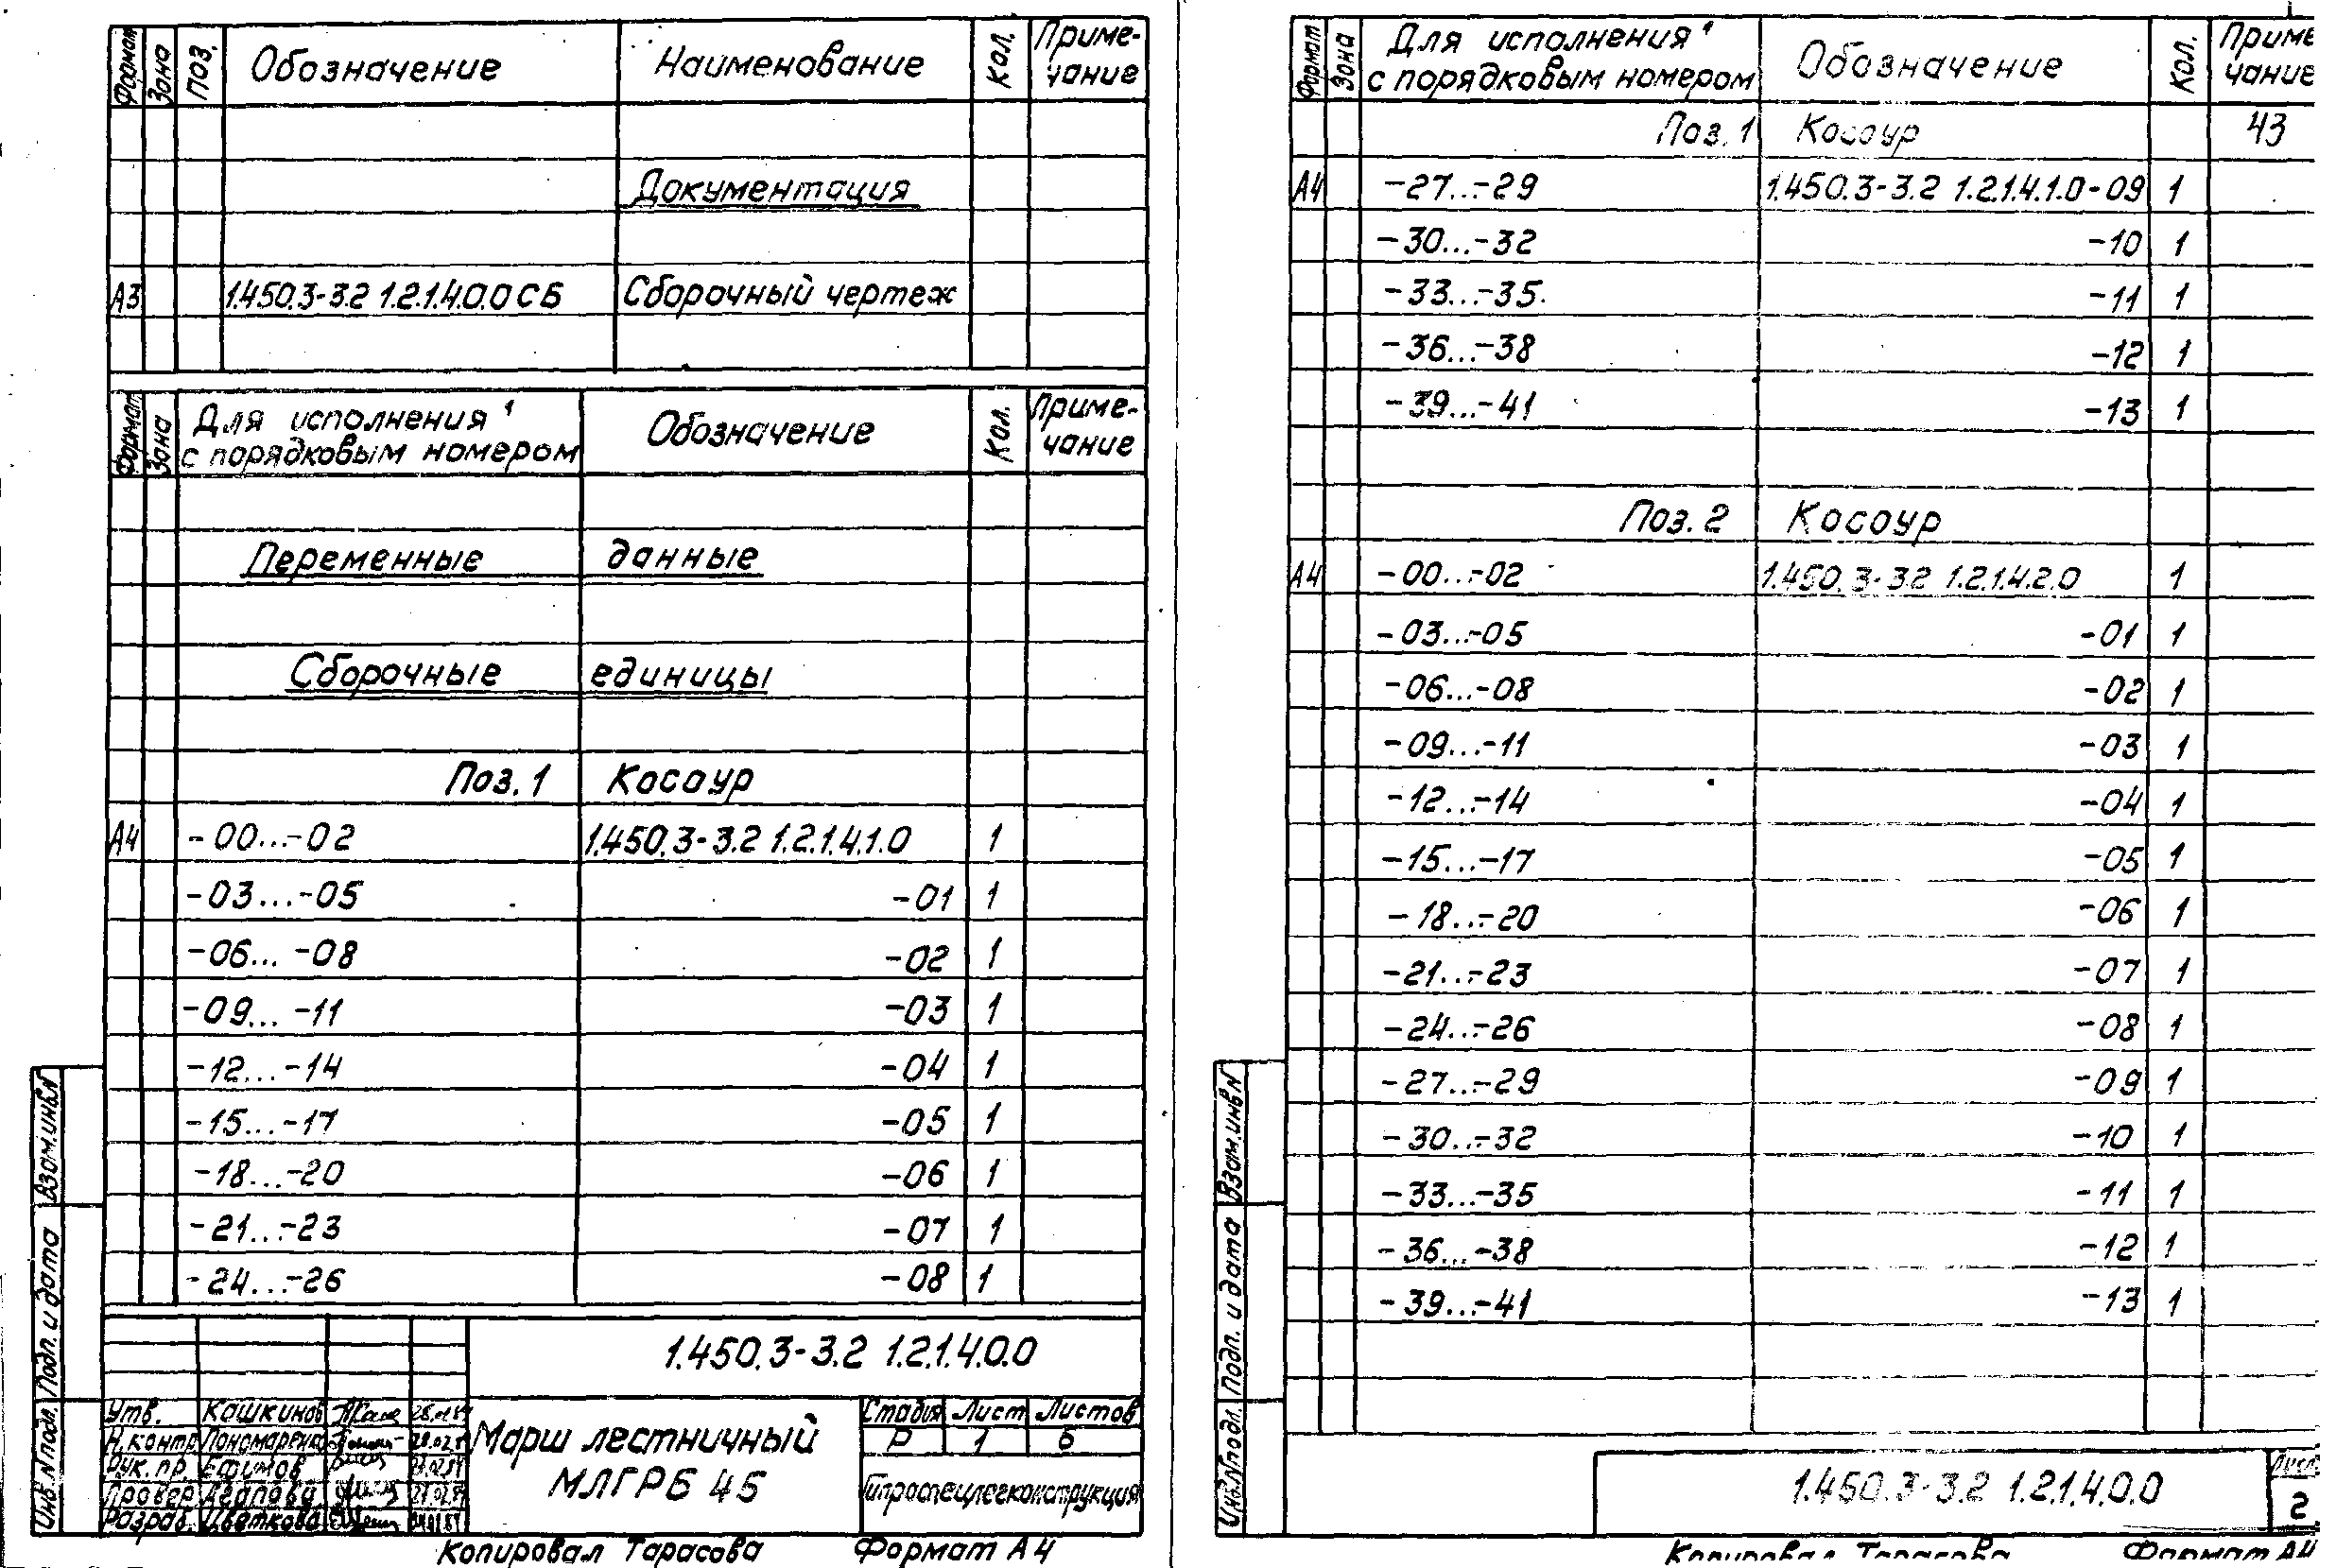 Формат Зона Поз. Обозначение Наименование Кол. Приме-
чание
Документация
А3 1.450.3-3.2 1.2.1.4.0.0 СБ Сборочный чертеж
Формат Зона Для исполнения¹ Обозначение Кол. Приме-
с порядковым номером чание
Переменные данные
Сборочные единицы
Поз. 1 Косоур
А4 -00...-02 1.450.3-3.2 1.2.1.4.1.0 1
-03...-05 -01 1
-06...-08 -02 1
-09...-11 -03 1
-12...-14 -04 1
-15...-17 -05 1
-18...-20 -06 1
-21...-23 -07 1
-24...-26 -08 1
Взам.инв.N
Подп. и дата
Инв.N подл.
1.450.3-3.2 1.2.1.4.0.0
Утв. Кашкинов
Н.контр. Пономаренко
Рук.пр. Ефимов
Провер. Агапова
Разраб. Цветкова
Марш лестничный
МЛГРБ 45
Стадия Лист Листов
Р 1 6
Гипроспецлегконструкция
Копировал Тарасова Формат А4
Формат Зона Для исполнения¹ Обозначение Кол. Приме
с порядковым номером чание
Поз. 1 Косоур 43
А4 -27...-29 1.450.3-3.2 1.2.1.4.1.0-09 1
-30...-32 -10 1
-33...-35 -11 1
-36...-38 -12 1
-39...-41 -13 1
Поз. 2 Косоур
А4 -00...-02 1.450.3-3.2 1.2.1.4.2.0 1
-03...-05 -01 1
-06...-08 -02 1
-09...-11 -03 1
-12...-14 -04 1
-15...-17 -05 1
-18...-20 -06 1
-21...-23 -07 1
-24...-26 -08 1
-27...-29 -09 1
-30...-32 -10 1
-33...-35 -11 1
-36...-38 -12 1
-39...-41 -13 1
Взам.инв.N
Подп. и дата
Инв.N подл.
1.450.3-3.2 1.2.1.4.0.0
Лист
2
Копировал Тарасова Формат А4